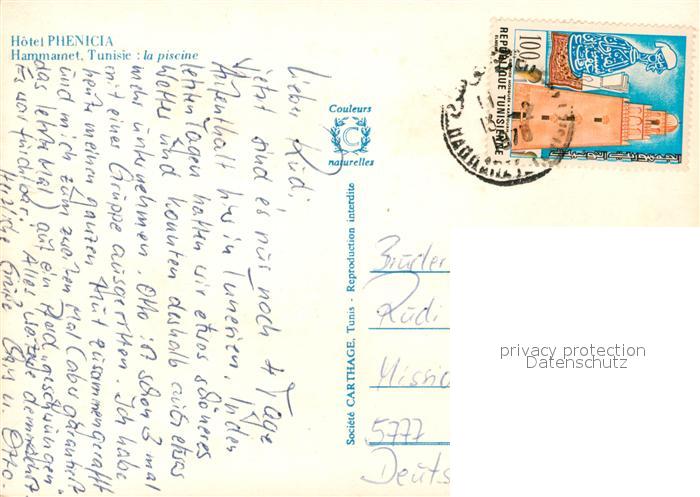 Hôtel PHENICIA
Hammamet, Tunisie : la piscine
Couleurs
C
naturelles
Société CARTHAGE, Tunis - Reproduction interdite
REPUBLIQUE TUNISIENNE
100
HAMMAMET
Lieber Rüdi,
jetzt sind es nur noch 4 Tage
Aufenthalt hier in Tunesien. In den
letzten Tagen hatten wir etwas schöneres
Wetter und konnten deshalb auch etwas
mehr unternehmen. Otto ist schon 3 mal
mit einer Gruppe ausgeritten. Ich habe
heute meinen ganzen Mut zusammengerafft
und mich zum zweiten Mal (aber garantiert
das letzte Mal) auf ein Pferd "geschwungen"
Es war furchtbar. Alles demnächst.
Herzliche Grüße u. Otto.
Brüder
Rüdi
Missio
5777
Deuts
privacy protection
Datenschutz